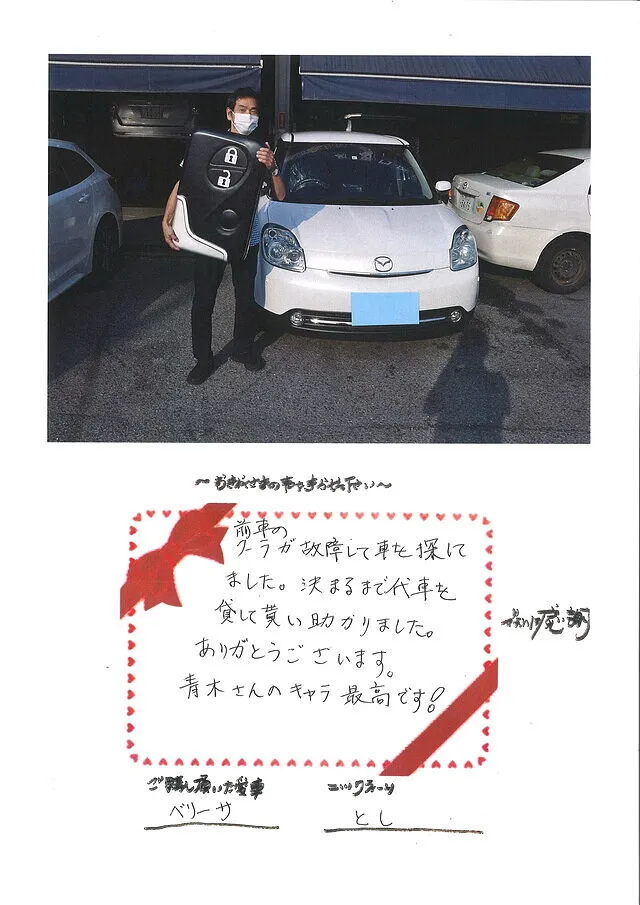 前車の
クーラが故障して車を探して
ました。決まるまで代車を
貸して貰い助かりました。
ありがとうございます。
青木さんのキャラ最高です!
感謝
ご購入頂いた愛車
ニックネーム
ベリーサ
とし